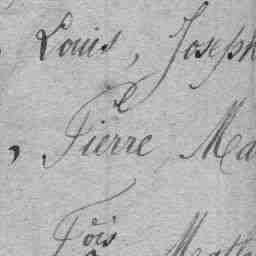 , Louis, Joseph
, Pierre Ma
Fois Math